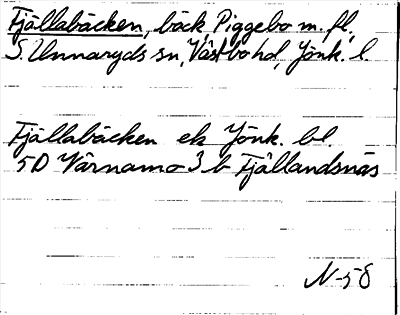 Fjällabäcken, bäck Piggebo m. fl.,
S. Unnaryds sn, Västbo hd, Jönk. l.
Fjällabäcken ek Jönk. bl.
5D Värnamo 3 b Fjällandsnäs
N-58